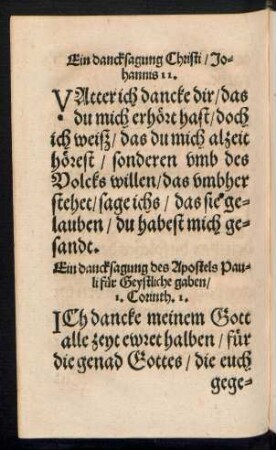 Ein dancksagung Christi / Jo-
hannis 11.
VAtter ich dancke dir / das
du mich erhört hast / doch
ich weiß / das du mich alzeit
hörest / sonderen vmb des
Volcks willen / das vmbher
stehet / sage ichs / das sie ge-
lauben / du habest mich ge-
sandt.
Ein dancksagung des Apostels Pau-
li für Geystliche gaben /
1. Corinth. 1.
ICh dancke meinem Gott
alle zeyt ewret halben / für
die genad Gottes / die euch
gege-